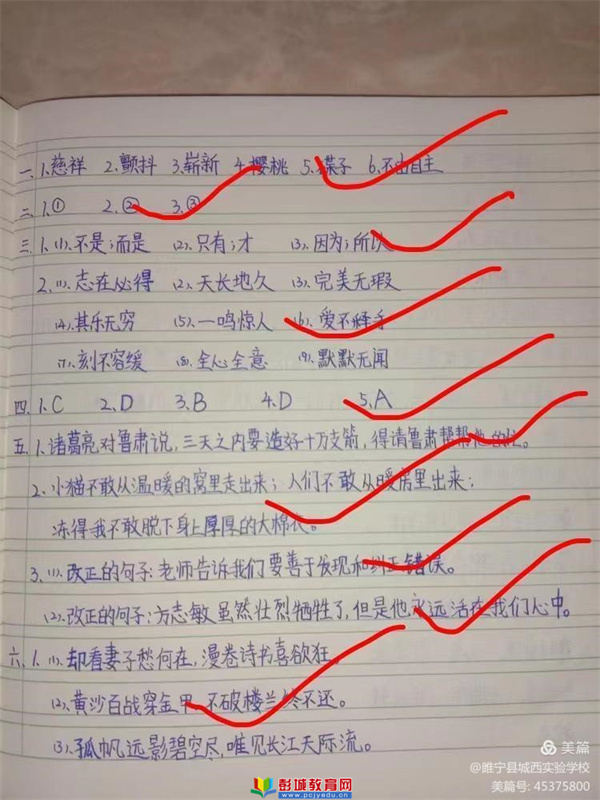 一、1.慈祥 2.颤抖 3.崭新 4.樱桃 5.碟子 6.不由自主
二、1.① 2.② 3.③
三、1.(1).不是;而是 (2).只有;才 (3).因为;所以
2.(1).志在必得 (2).天长地久 (3).完美无瑕
(4).其乐无穷 (5).一鸣惊人 (6).爱不释手
(7).刻不容缓 (8).全心全意 (9).默默无闻
四.1.C 2.D 3.B 4.D 5.A
五.1.诸葛亮对鲁肃说,三天之内要造好十万支箭,得请鲁肃帮帮他的忙。
2.小猫不敢从温暖的窝里走出来;人们不敢从暖房里出来;
冻得我不敢脱下身上厚厚的大棉衣。
3.(1).改正的句子:老师告诉我们要善于发现和纠正错误。
(2).改正的句子:方志敏虽然壮烈牺牲了,但是他永远活在我们心中。
六、1.(1).却看妻子愁何在,漫卷诗书喜欲狂。
(2).黄沙百战穿金甲,不破楼兰终不还。
(3).孤帆远影碧空尽,唯见长江天际流。
美篇
@睢宁县城西实验学校
美篇号: 45375800
彭城教育网
www.pcjyedu.cn